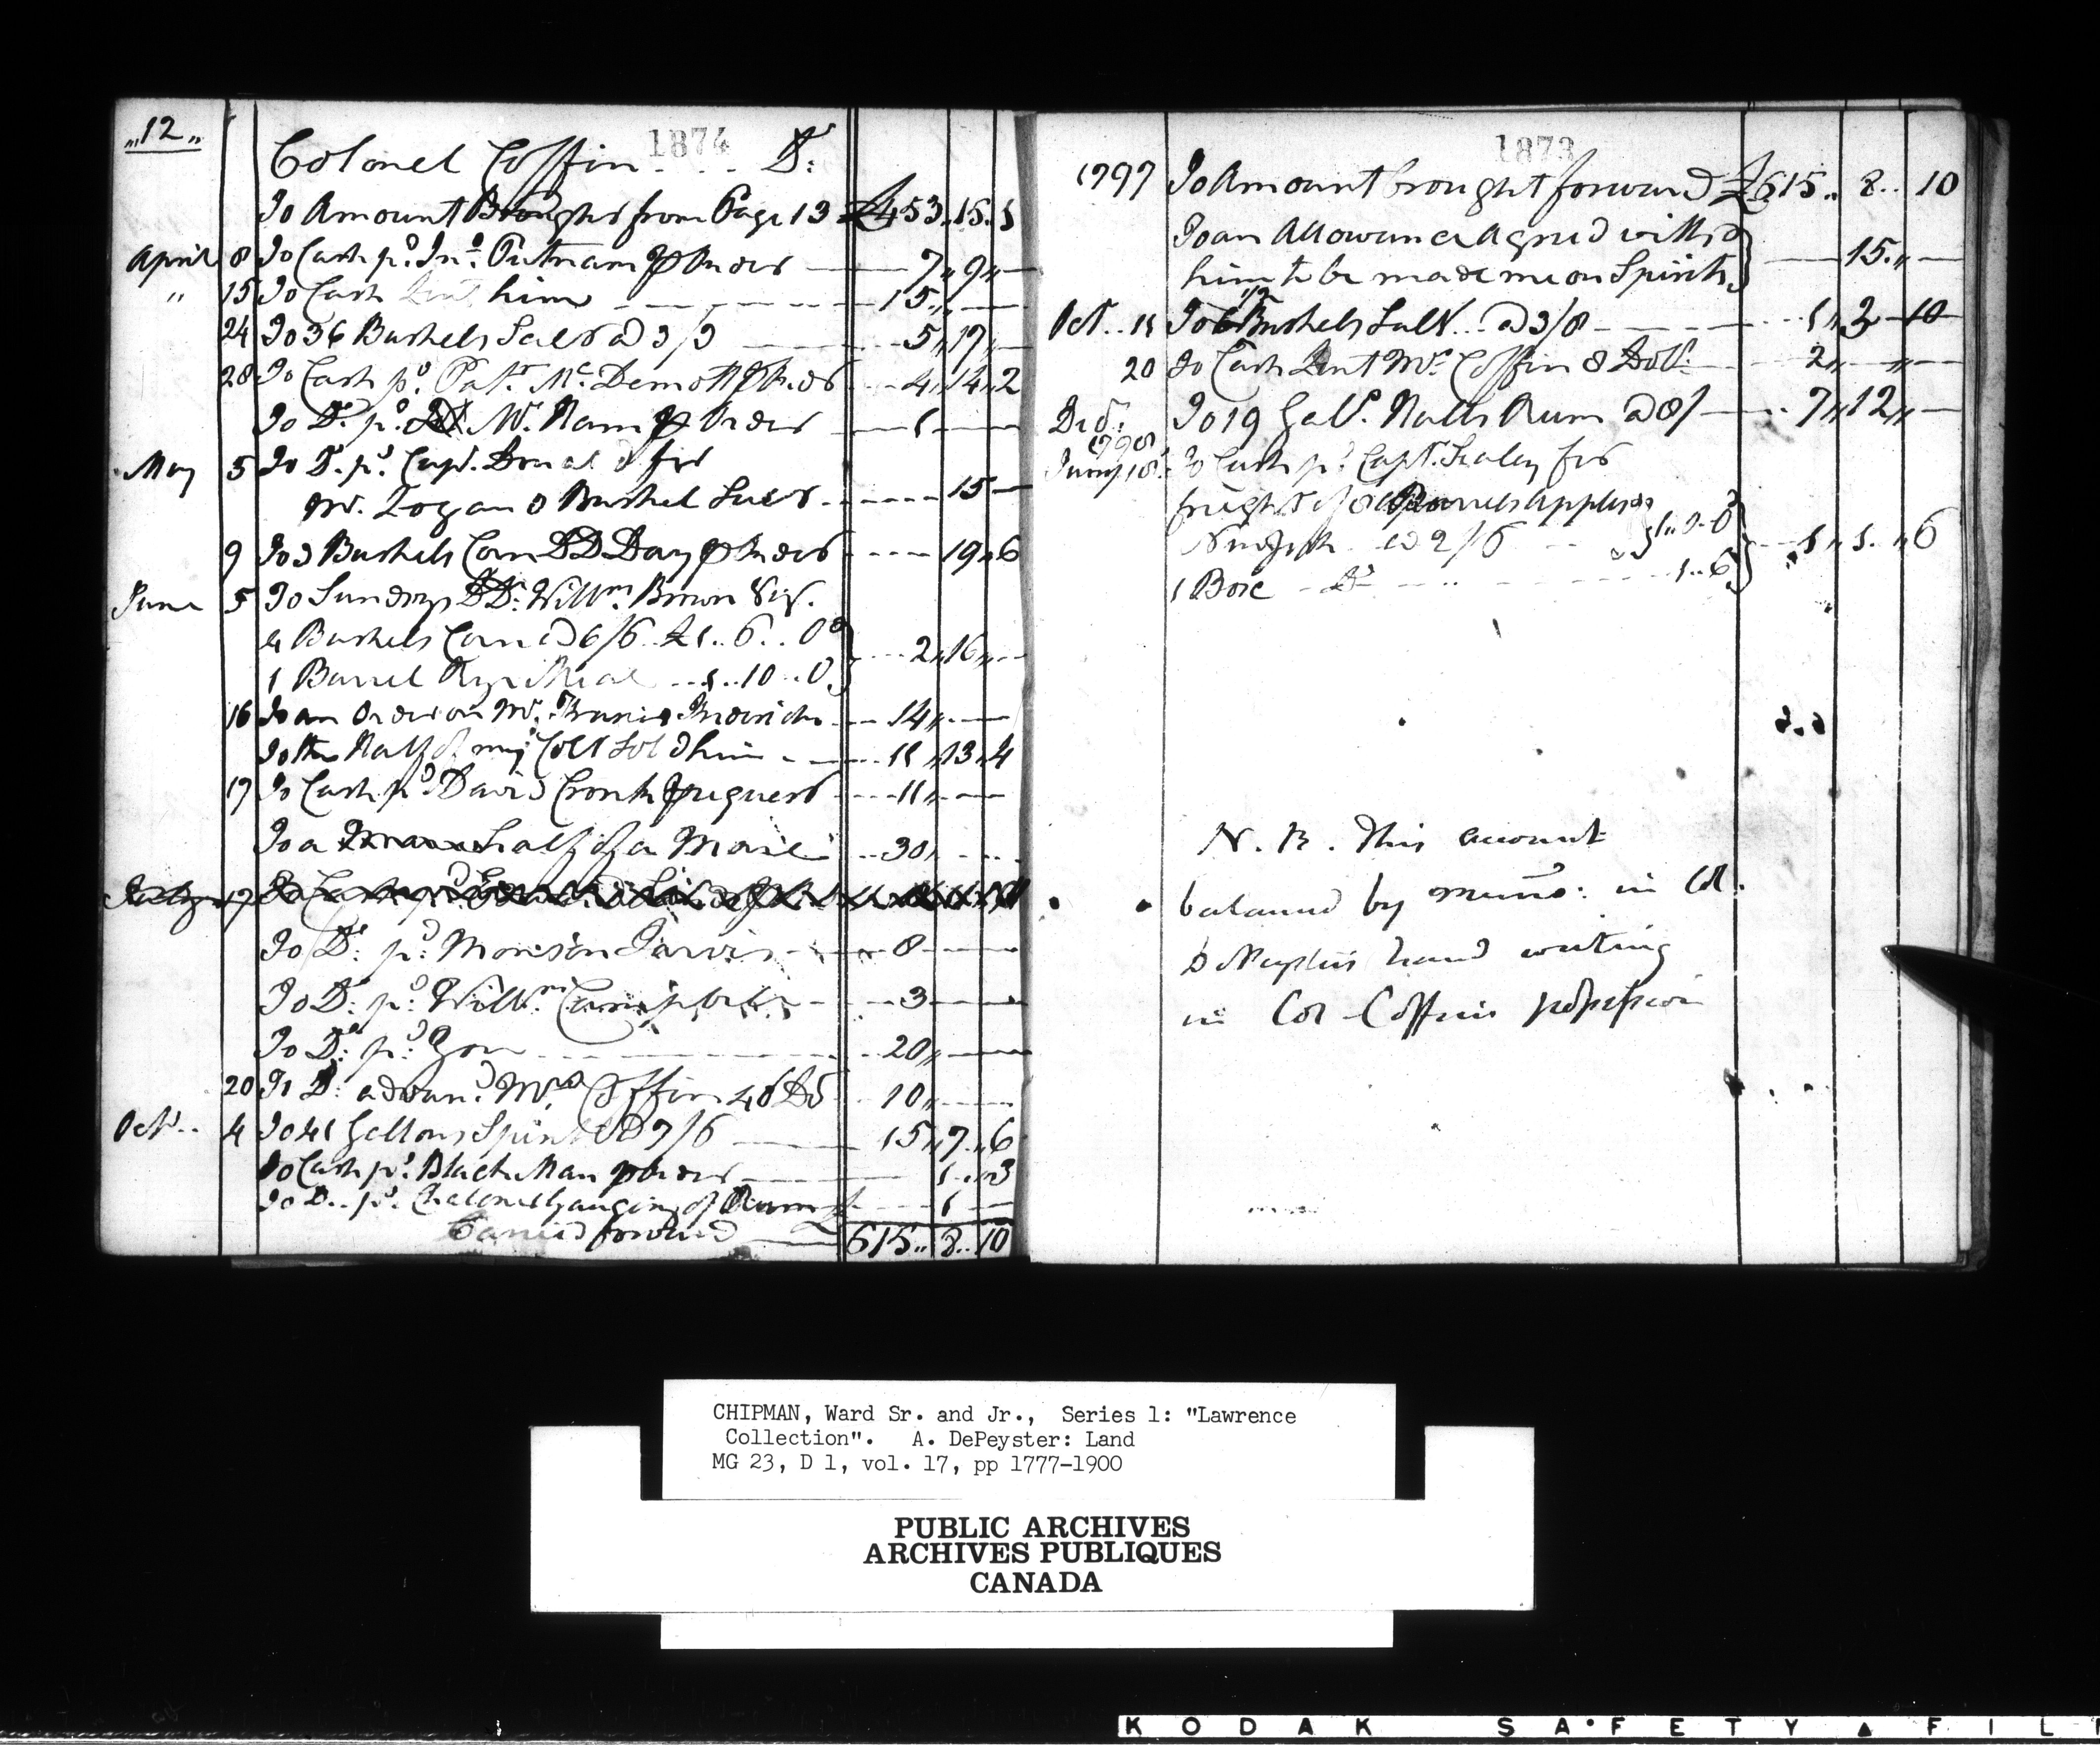 „12„
1874
Colonel Coffin . . . Dr:
To Amount Brought from Page 13 £453.. 15.. 5
April 8 To Cash pd. Jno. Putnam p Order 7„ 9„ —
„ 15 To Cash Lent him 15„ —
24 To 36 Bushels Salt @ 3/3 5„ 17„ —
28 To Cash pd. Patk. McDemott p Order 4„ 14„ 2
To Do. pd. W. Ham p Order 1 — —
May 5 To Do. pd. Capt. Donald for
Mr. Logan 8 Bushel Salt 15 —
9 To 3 Bushels Corn DD Day p Order 19„ 6
June 5 To Sundrys DD: Willm. Brown Viz.
4 Bushels Corn @ 6/6 £1.. 6.. 0
1 Barrel Rye Meal 1.. 10.. 0 } 2„ 16„ —
16 To an Order on Mr. 14„ —
To the Half of my Colt Sold him 11„ 13„ 4
17 To Cash pd. David Cronk p request 11„ —
To a half of a Mare 30„
July 17
To Do: pd. Monson Jarvis 8 —
To Do: pd. Willm. Campbell 3 —
To Do: pd. Gov 20„ —
20 To Do: advand. Mrs. Coffin 40 Ds 10„ —
Octr.. 4 To 41 Gallons Spirits @ 7/6 15„ 7„ 6
To Cash pd. Black Man p Order 1.. 3
To Do.. pd. Gauging of Rum 1 —
Carried forward £615.. 8.. 10
1873
1797 To Amount brought forward £615.. 8.. 10
To an Allowance Agreed with
him to be made me on Spirits } 15.„ —
Oct.. 11 To 6 1/2 Bushels Salt... @ 3/8 1„ 3 — 10
20 To Cash Lent Mrs. Coffin 8 Doll: 2„ — „ —
Decr: To 19 Gals. Malls Rum @ 8/ 7„ 12„ —
1798
Jany 18: To Cash pd. Capt. Sealey for
freight of 8 Barrels apples
New York @ 2/6 } 1.. 0.. 0
1 Box Do 1.. 6 } 1„ 1.„ 6
N.B. This account
balanced by memo: in Col:
DePeyster's hand writing
in Col Coffin's possession
CHIPMAN, Ward Sr. and Jr., Series 1: "Lawrence
Collection". A. DePeyster: Land
MG 23, D 1, vol. 17, pp 1777-1900
PUBLIC ARCHIVES
ARCHIVES PUBLIQUES
CANADA
KODAK SAFETY ▲ FIL